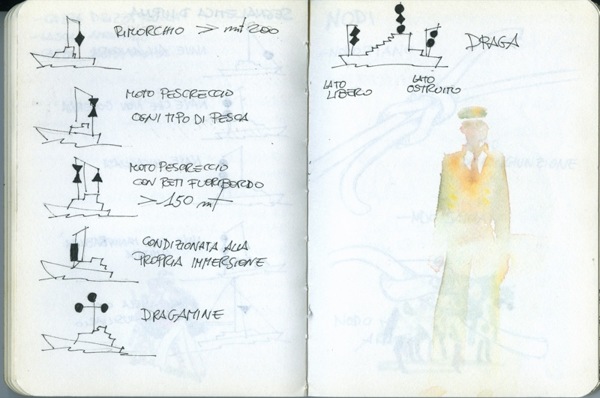 RIMORCHIO > mt 200
MOTO PESCRECCIO
OGNI TIPO DI PESCA
MOTO PESCRECCIO
CON RETI FUORIBORDO
> 150 mt
CONDIZIONATA ALLA
PROPRIA IMMERSIONE
DRAGAMINE
DRAGA
LATO
LIBERO
LATO
OSTRUITO